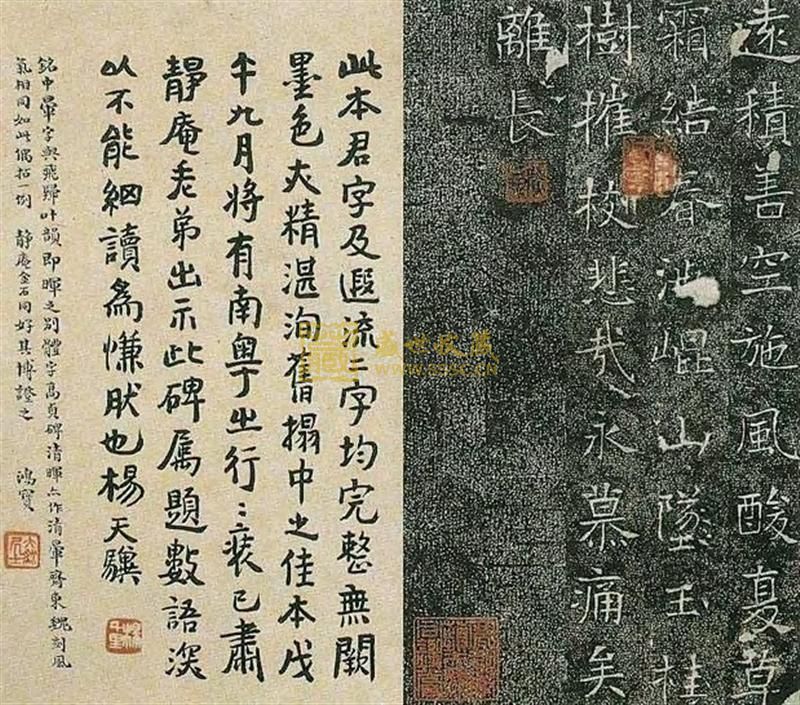 遠積善空施風酸夏草
霜結春沾崐山墜玉桂
樹摧枝悲哉永慕痛矣
離長
此本君字及遐流二字均完整無闕
墨色亦精湛洵舊搨中之佳本戊
午九月將有南粵之行〻裝已肅
靜庵老弟出示此碑屬題數語深
以不能細讀為慊肰也楊天驥
銘中暈字與飛歸叶韻即暉之別體字高貞碑清暉亦作清暈齊東魏刻風
氣相同如此偶拈一例 靜庵金石同好其博證之 鴻寶
盛世收藏
www.sssc.cn